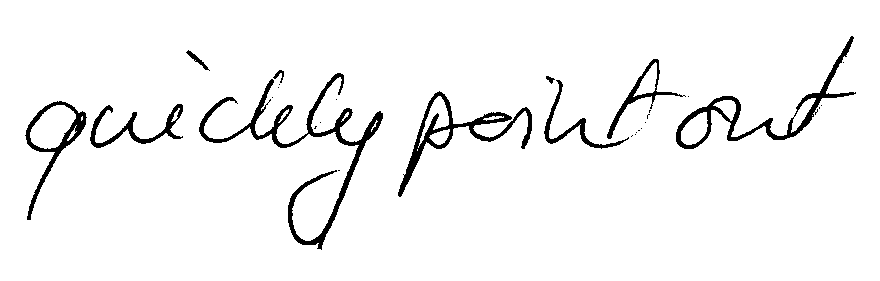 quickly point out